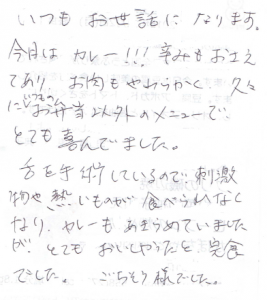 いつも お世話に なります。
今日は カレー!!! 辛みも おさえ
てあり お肉も やわらかく、久々
に お弁当以外の メニューで、
とても 喜んでました。
舌を手術しているので 刺激
物や 熱いものが 食べられなく
なり、カレーも あきらめていました
が、とても おいしかったと 完食
でした。 ごちそう様でした。